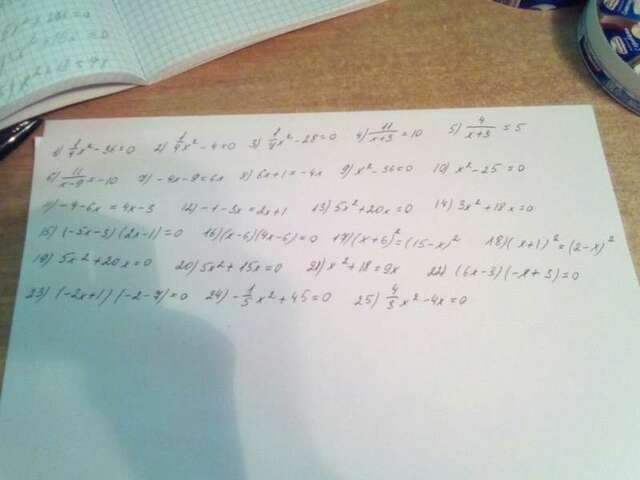 1) 1/4x²-36=0 2) 1/4x²-4=0 3) 1/7x²-28=0 4) 11/(x+3)=10 5) 4/(x+3)=5
6) 11/(x-9)=-10 7) -4x-9=6x 8) 6x+1=-4x 9) x²-36=0 10) x²-25=0
11) -4-6x=4x-3 12) -1-3x=2x+1 13) 5x²+20x=0 14) 3x²+18x=0
15) (-5x-3)(2x-1)=0 16) (x-6)(4x-6)=0 17) (x+6)²=(15-x)² 18) (x+1)²=(2-x)²
19) 5x²+20x=0 20) 5x²+15x=0 21) x²+18=9x 22) (6x-3)(-x+3)=0
23) (-2x+1)(-2-7)=0 24) -1/5x²+45=0 25) 4/3x²-4x=0